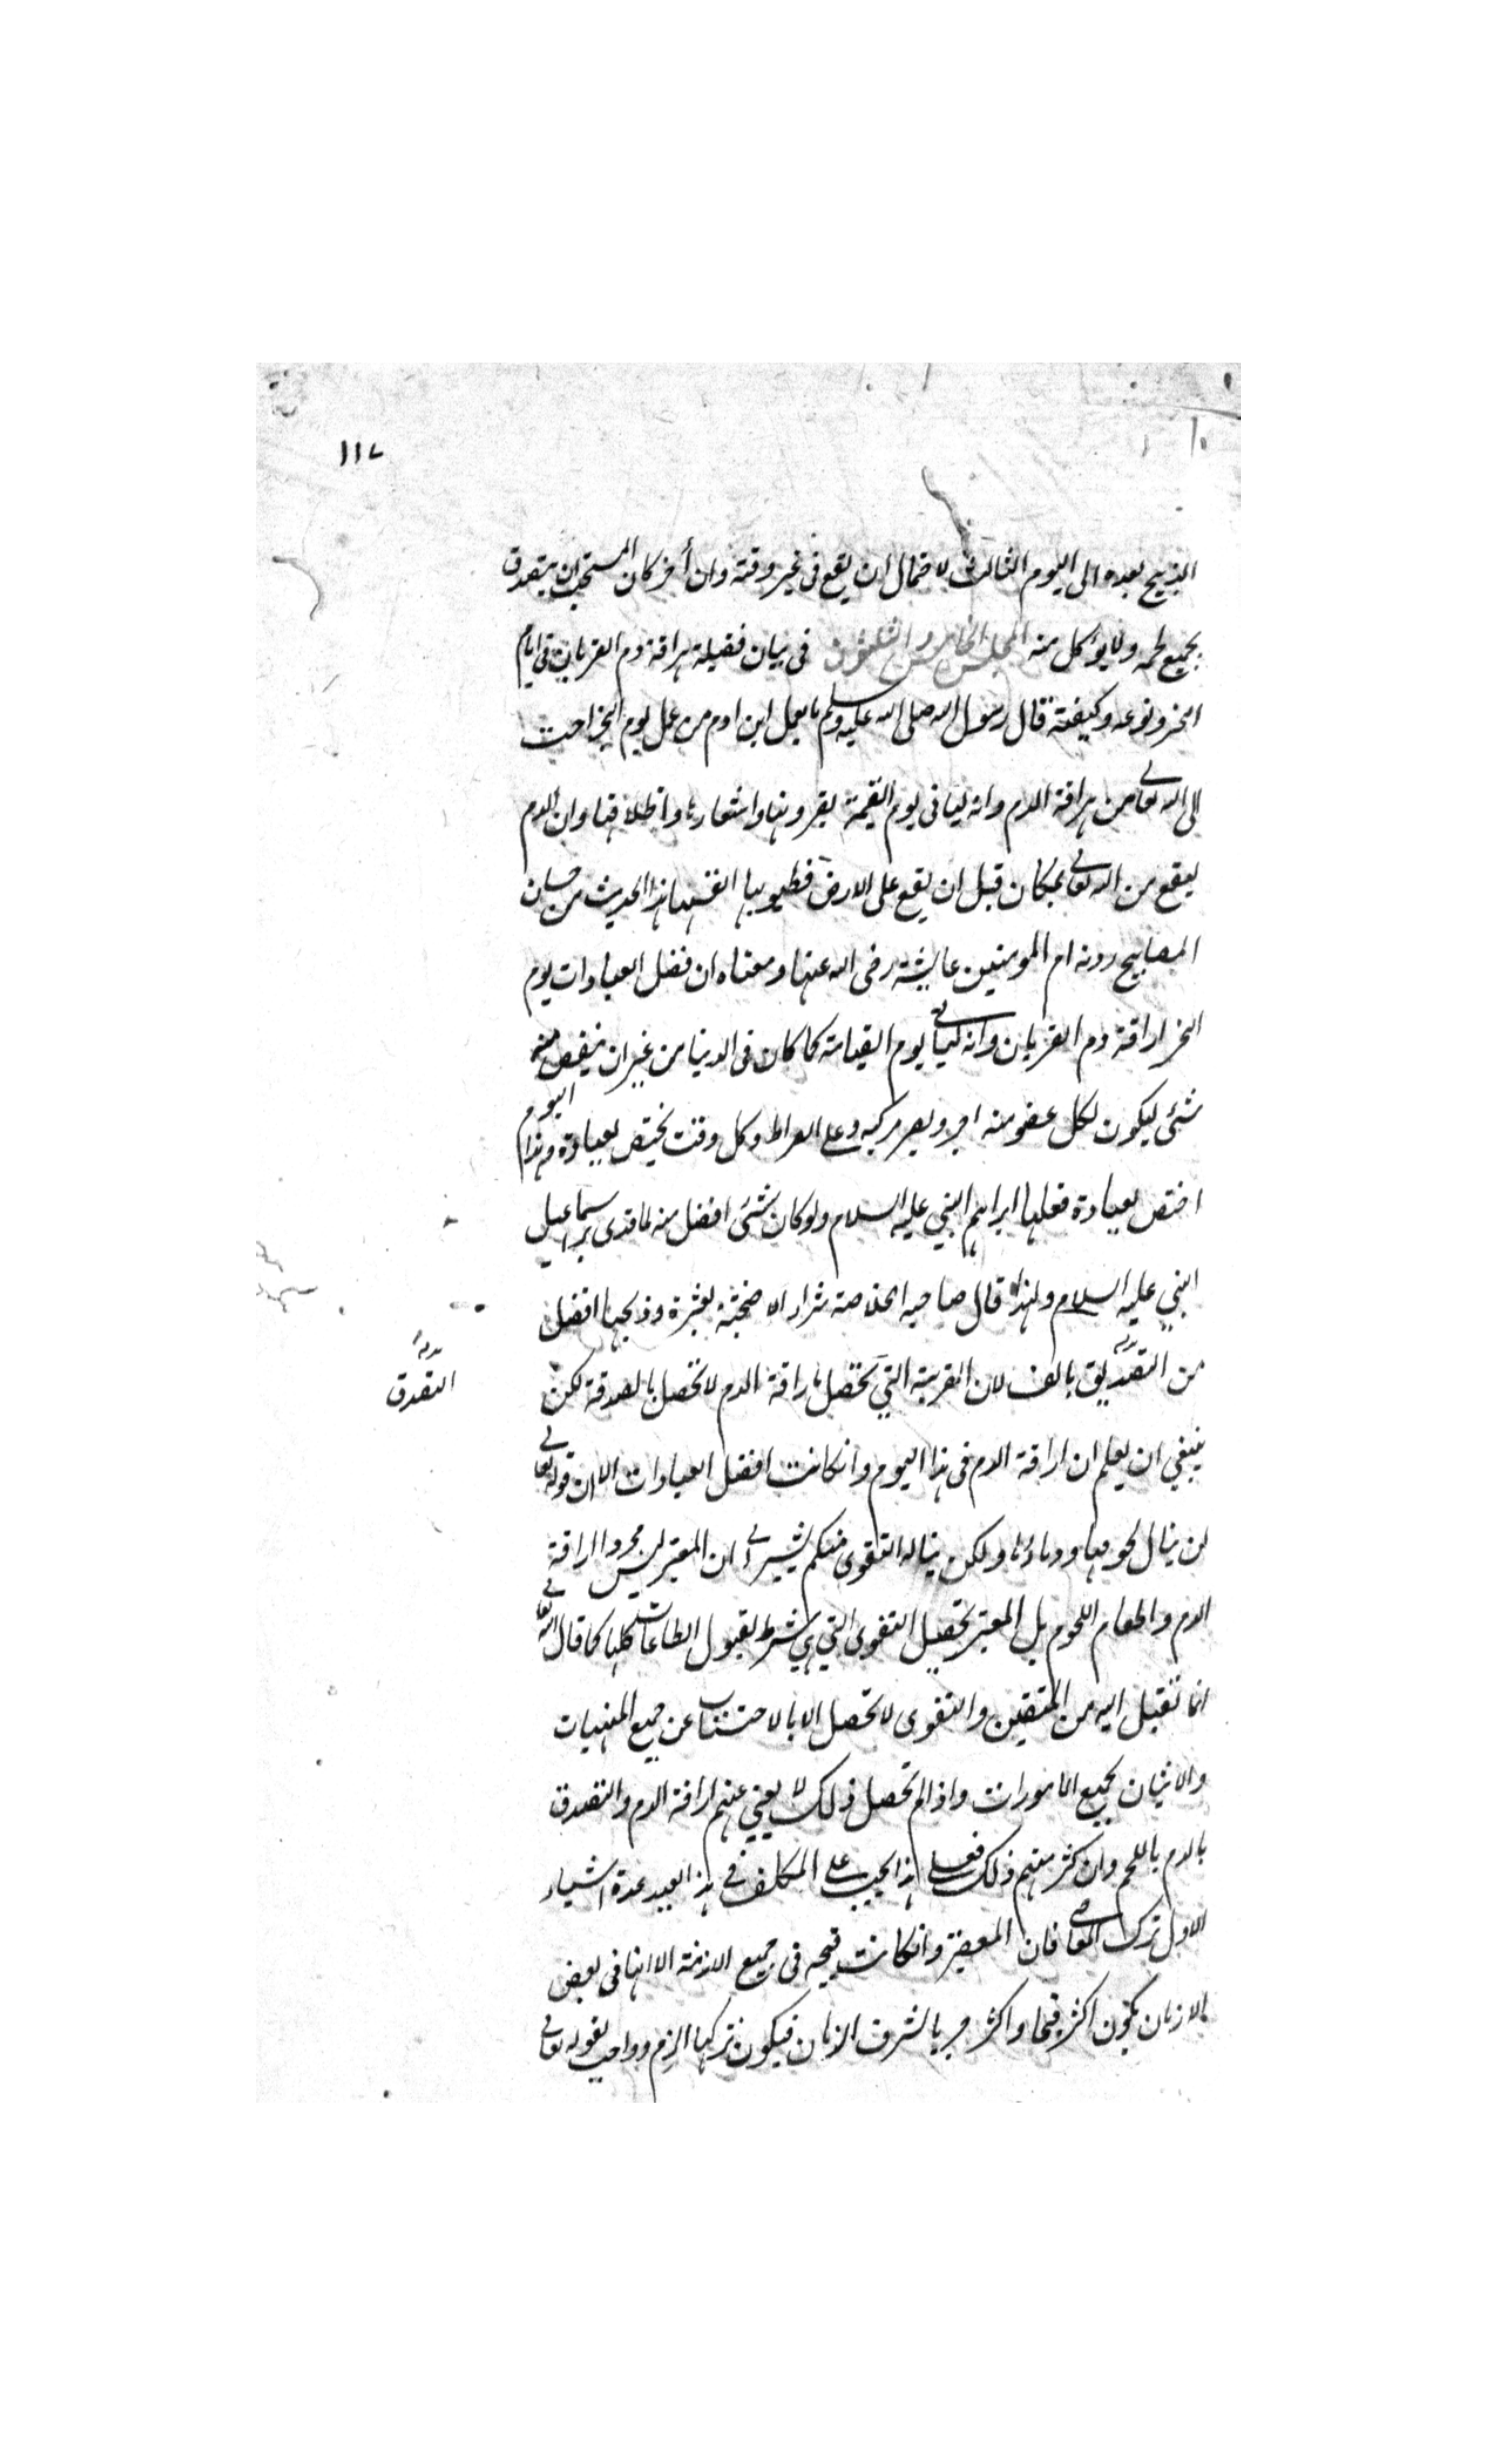 ١١٧
الذبح بعده الى اليوم الثالث لاحتمال ان يقع فى غير وقته وان أخر كان المستحب ان يتصدق
بجميع لحمه ولا يؤكل منه المجلس الخامس والثلثون فى بيان فضيلة هراقة دم القربان فى ايام
النحر ونوعه وكيفيته قال رسول الله صلى الله عليه وسلم ما عمل ابن ادم من عمل يوم النحر احب
الى الله تعالى من هراقة الدم وانه لياتى يوم القيمة بقرونها واشعارها واظلافها وان الدم
ليقع من الله تعالى بمكان قبل ان يقع على الارض فطيبوا بها انفسها هذا الحديث من حسان
المصابيح روته ام المومنين عايشة رضى الله عنها ومعناه ان فضل العبادات يوم
النحر اراقة دم القربان وانه لياتى يوم القيامة كما كان فى الدنيا من غير ان ينقص منه
شئ ليكون لكل عضو منه اجر ويصير مركبه على الصراط وكل وقت يختص بعبادة وهذا اليوم
اختص بعبادة فعلها ابراهيم النبي عليه السلام ولو كان شئ افضل منه لما فدى به اسماعيل
النبي عليه السلام ولهذا قال صاحب الخلاصة شراء الاضحية بعشرة وذبحها افضل
من التصديق بالف لان القربة التي تحصل باراقة الدم لا تحصل بالصدقة لكن
التصدق
ينبغي ان يعلم ان اراقة الدم فى هذا اليوم وانكانت افضل العبادات الا ان قوله تعالى
لن ينال لحومها ودماؤها ولكن يناله التقوى منكم يشير الى ان المعتبر ليس مجرد اراقة
الدم واطعام اللحوم بل المعتبر تحصيل التقوى التي هي شرط لقبول الطاعات كلها كما قال الله تعالى
انما تقبل الله من المتقين والتقوى لا تحصل الا بالاجتناب عن جميع المنهيات
والاتيان بجميع المامورات واذا لم تحصل ذلك لا يغني عنهم اراقة الدم والتصدق
بالدم باللحم وان كثر منهم ذلك فعلى هذا يجب على المكلف فى هذا العيد عدة اشياء
الاول ترك المعاصى فان المعصية وانكانت قبيحه فى جميع الازمنة الا انها فى بعض
الازمان يكون اكثر قبحا واكثر بالشرف الزمان فيكون تركها الزم وواجب لقوله تعالى